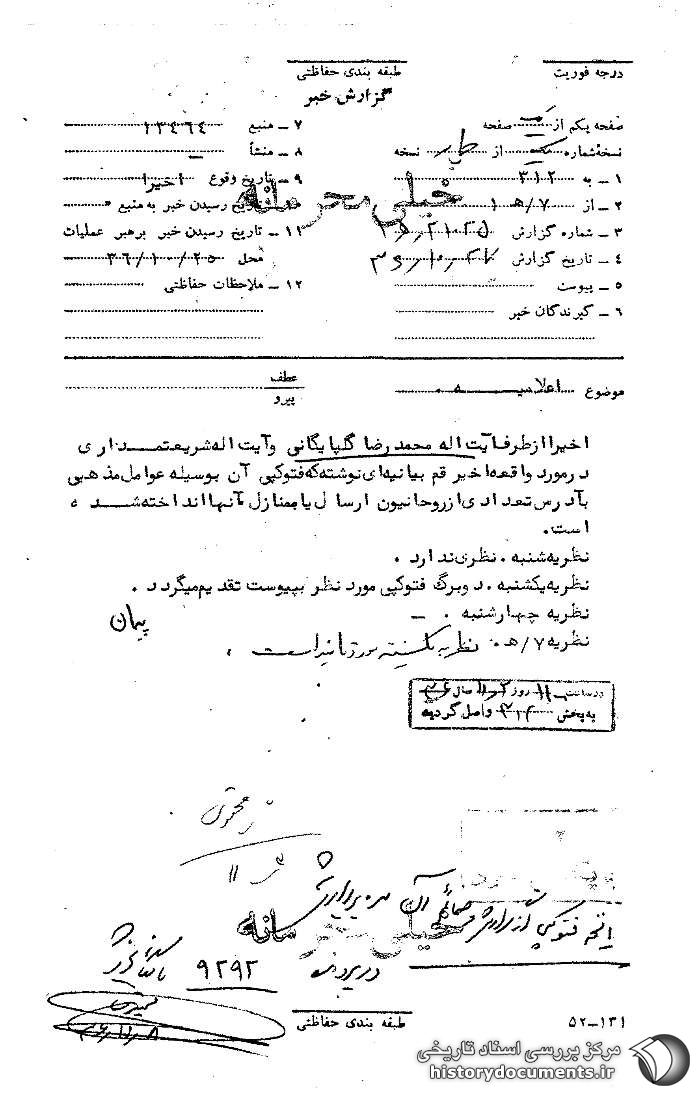 درجه فوریت
طبقه بندی حفاظتی
گزارش خبر
صفحه یکم از یک صفحه
نسخه شماره یک از چهار نسخه
۱ ـ به ۳۱۲
۲ ـ از ۷/ه‍ ۱
۳ ـ شماره گزارش
۴ ـ تاریخ گزارش
۵ ـ پیوست
۶ ـ گیرندگان خبر
۷ ـ منبع ۱۳۴۶۴
۸ ـ منشأ ـ
۹ ـ تاریخ وقوع اخیرا
تاریخ رسیدن خبر به منبع
۱۱ ـ تاریخ رسیدن خبر برهبر عملیات
محل ۳۶/۱۰/۲۵
۱۲ ـ ملاحظات حفاظتی
خیلی محرمانه
موضوع اعلامیه .
عطف
پیرو
اخیرا از طرف آیت اله محمد رضا گلپایگانی و آیت اله شریعتمداری
در مورد واقعه اخیر قم بیانیه ای نوشته که فتوکپی آن بوسیله عوامل مذهبی
بآدرس تعدادی از روحانیون ارسال یا بمنازل آنها انداخته شده
است.
نظریه شنبه . نظری ندارد .
نظریه یکشنبه . دو برگ فتوکپی مورد نظر بپیوست تقدیم میگردد .
نظریه چهارشنبه . ـ
پیمان
نظریه ۷/ه‍ . نظریه یکشنبه مورد تائید است .
در ساعت ۱۱ روز سال
به بخش ۳۱۲ واصل گردید
فتوکپی گزارش و ضمائم آن
خیلی محرمانه
در پرونده ۹۲۹۲
طبقه بندی حفاظتی
۱۳۱ـ۵۲
مرکز بررسی اسناد تاریخی
historydocuments.ir